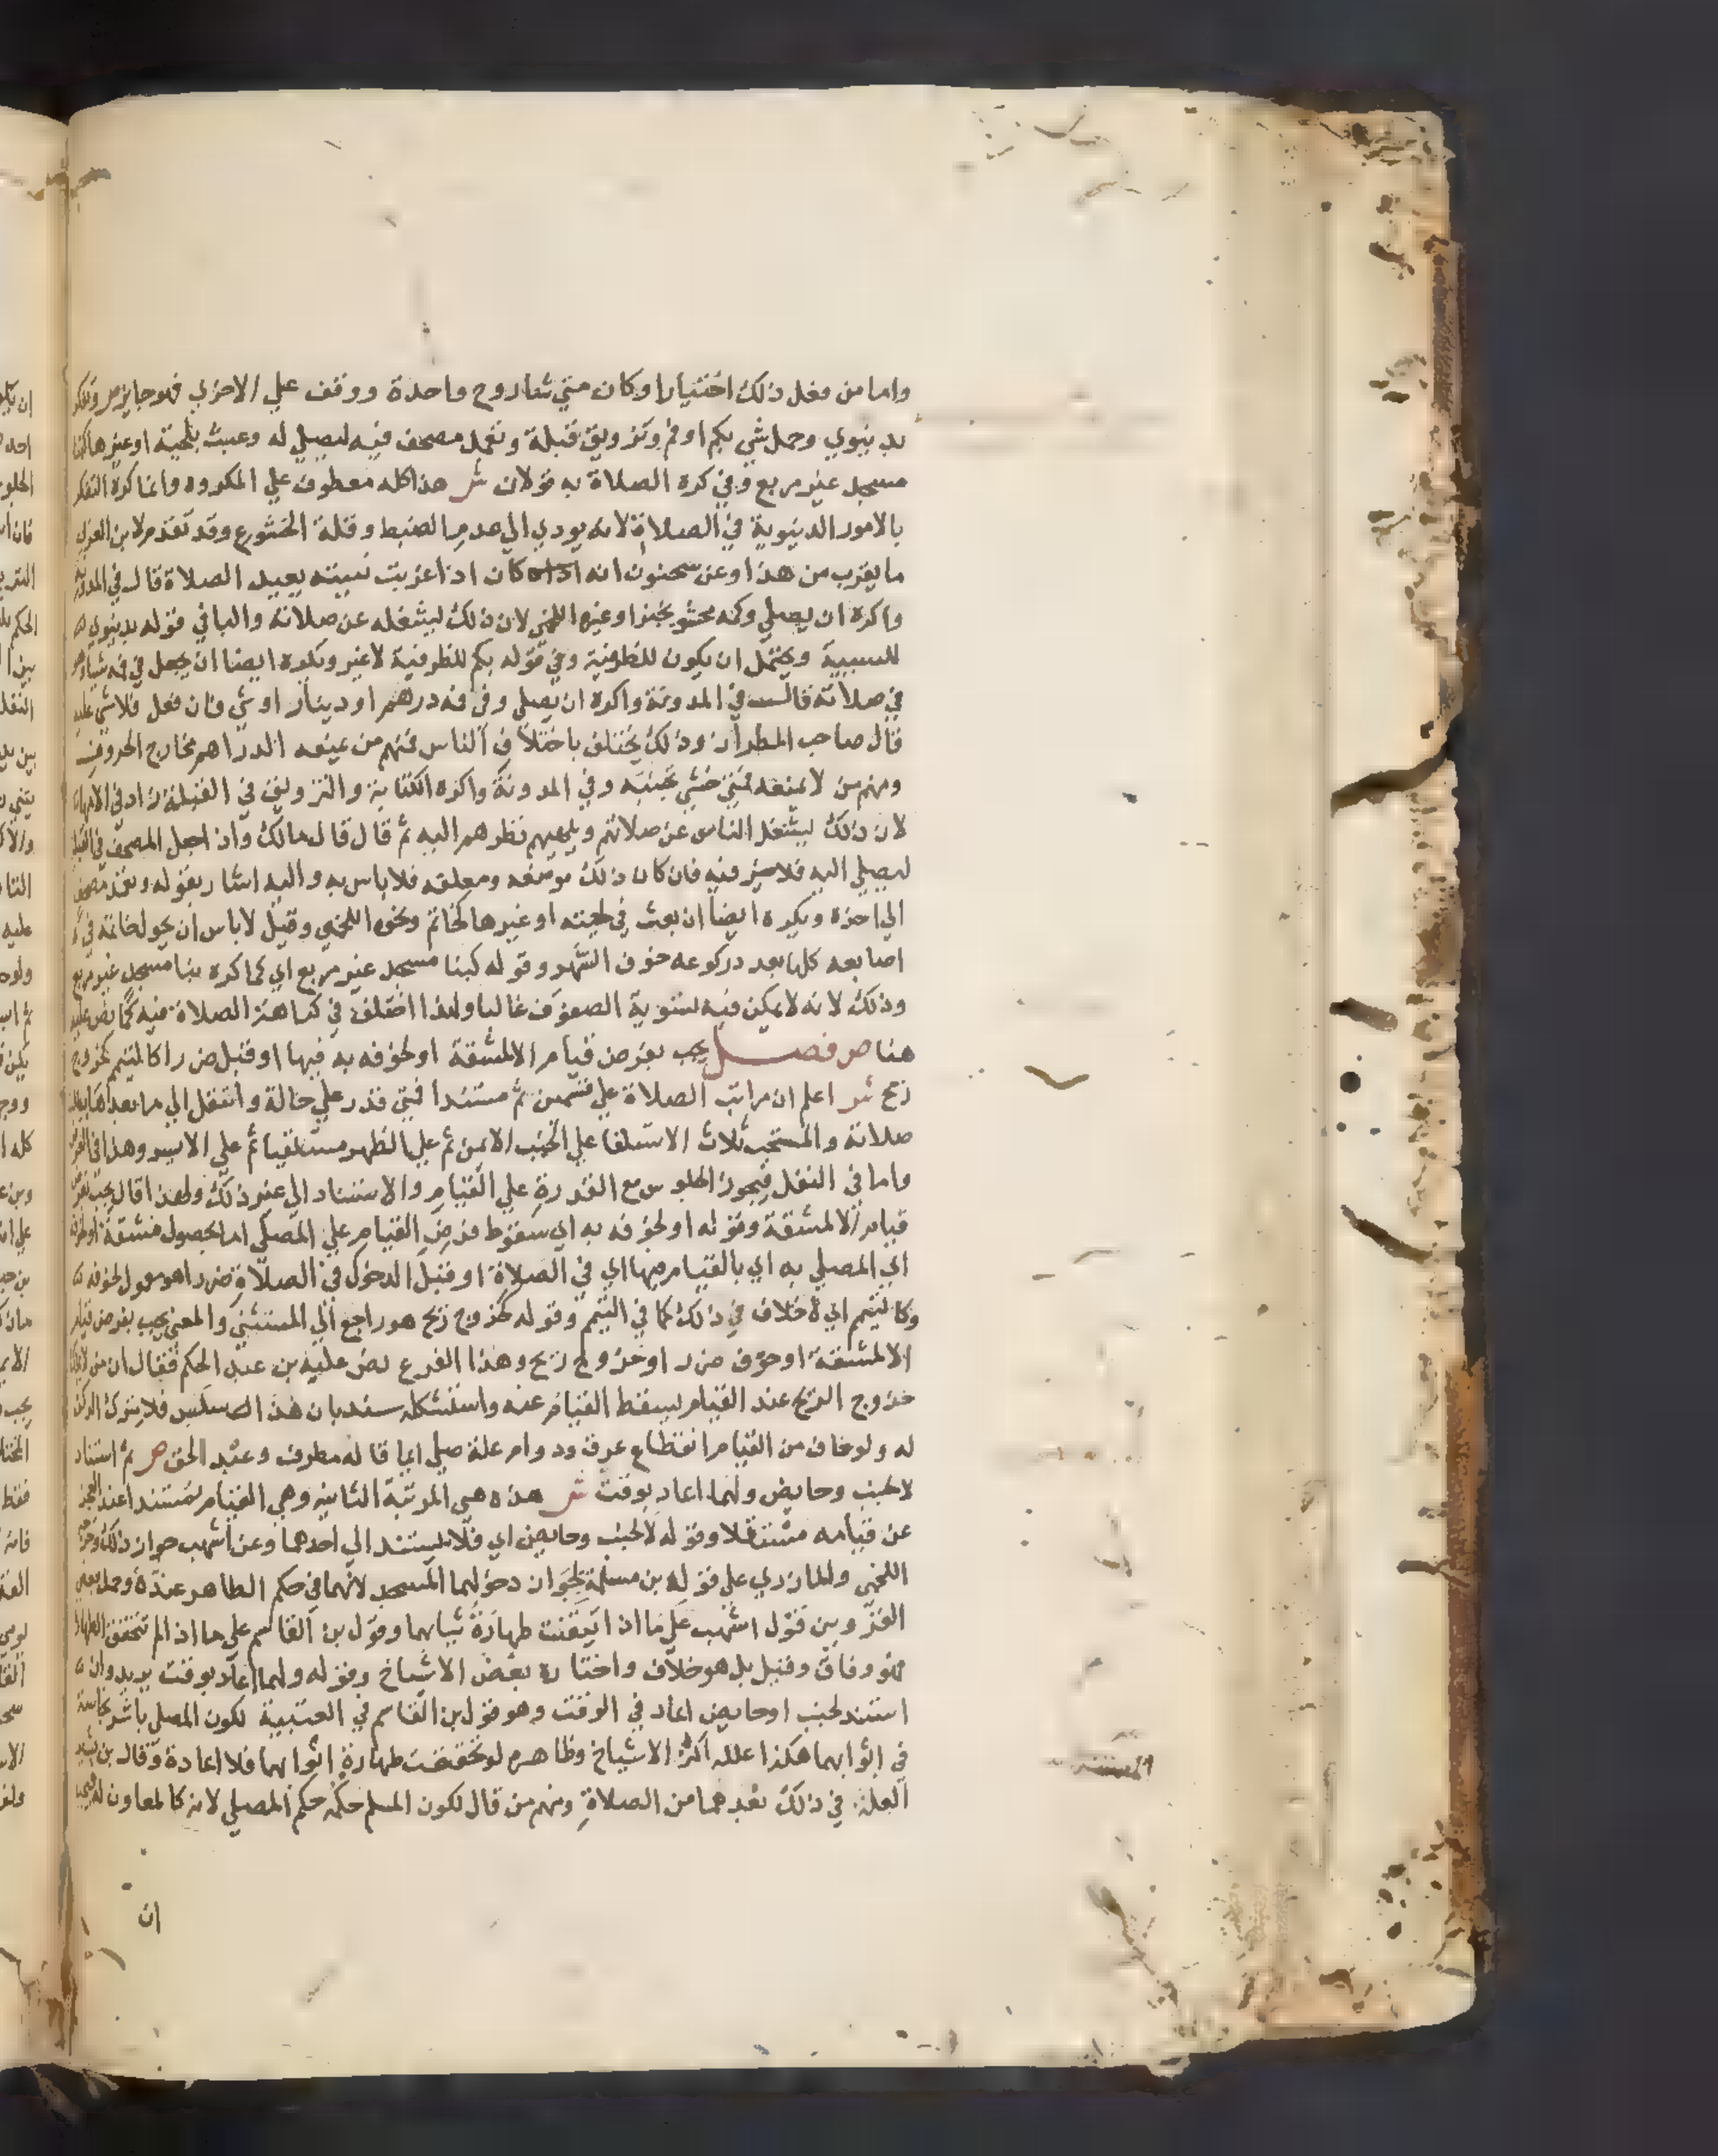 واما من فعل ذلك اختيارا وكان متي شا روح واحدة ووقف علي الاخري فهو جايز ص وتفكر
بدنيوي وحمل شي بكم او فم وتزويق قبلة وتعمد مصحف فيه ليصلي له وعبث بلحية او غيرها كبنا
مسجد غير مربع وفي كره الصلاة به قولان ش هذا كله معطوف علي المكروه وانما كره التفكر
بالامور الدنيوية في الصلاة لانه يودي الي عدم الضبط وقلة الخشوع وقد تقدم لابن العربي
ما يقرب من هذا وعن سحنون انه كان اذا عزبت نيته يعيد الصلاة قال في المدونة
واكره ان يصلي وكمه محشو بخبز او غيره اللخمي لان ذلك يشغله عن صلاته والبا في قوله بدنيوي
للسببية ويحتمل ان يكون للظرفية وفي قوله بكم للظرفية لا غير ويكره ايضا ان يجعل في فمه شيا وهو
في صلاته قال في المدونة واكره ان يصلي وفي فمه درهم او دينار او شي فان فعل فلا شي عليه
قال صاحب الطراز وذلك يختلف باختلاف الناس فمنهم من يمنعه الدراهم مخارج الحروف
ومنهم من لا يمنعه فمتي خشي تجنبه وفي المدونة واكره الكتابة والتزويق في القبلة زاد في الامهات
لان ذلك يشغل الناس عن صلاتهم ويلهيهم نظرهم اليه ثم قال قال مالك واذا جعل المصحف في القبلة
ليصلي اليه فلا خير فيه فان كان ذلك موضعه ومعلقه فلا باس به واليه اشار بقوله وتعمد مصحف
الي اخره ويكره ايضا ان يعبث في لحيته او غيرها كخاتم ونحوه اللخمي وقيل لا باس ان يحول خاتمه في
اصابعه كلها بعدد ركوعه خوف السهو وقوله كبنا مسجد غير مربع اي كما كره بنا مسجد غير مربع
وذلك لانه لا يمكن فيه تسوية الصفوف غالبا ولهذا اختلف في كراهة الصلاة فيه كما نص عليه
هنا ص فصل يجب بفرض قيام الا لمشقة او لخوفه به فيها او قبل ضررا كالتيمم كخروج
ريح ش اعلم ان مراتب الصلاة علي قسمين ثم مستندا فمتي قدر علي حالة وانتقل الي ما بعدها بطلت
صلاته والمستحب ثلاث الاستلقا علي الجنب الايمن ثم علي الظهر مستلقيا ثم علي الايسر وهذا في الفرض
واما في النفل فيجوز الجلوس مع القدرة علي القيام والاستناد الي غير ذلك ولهذا قال يجب بفرض
قيام الا لمشقة وقوله او لخوفه به اي سقوط فرض القيام علي المصلي اما لحصول مشقة او لخوفه
اي المصلي به اي بالقيام فيها اي في الصلاة او قبل الدخول في الصلاة ضررا هو معمول لخوفه
وكالتيمم اي لا خلاف في ذلك كما في التيمم وقوله كخروج ريح هو راجع الي المستثني والمعني يجب بفرض قيام
الا لمشقة او خوف ضرر او خروج ريح وهذا الفرع نص عليه بن عبد الحكم فقال ان من
خروج الريح عند القيام يسقط القيام عنه واستشكله سند بان هذا السلس فلا يترك الركن
له ولو خاف من القيام انقطاع عرق ودوام علة صلي ايما قاله مطرف وعبد الحق ص ثم استناد
لا لجنب وحايض ولهما اعاد بوقت ش هذه هي المرتبة الثانية وهي القيام مستندا عند العجز
عن قيامه مستقلا وقوله لا لجنب وحايض اي فلا يستند الي احدهما وعن اشهب جواز ذلك
اللخمي والمازري علي قول بن مسلمة بجواز دخولهما المسجد لانهما في حكم الطاهر عنده وحمل بعض
القرويين قول اشهب علي ما اذا تيقنت طهارة ثيابهما وقول بن القاسم علي ما اذا لم تتحقق الطهارة
فهو وفاق وقيل بل هو خلاف واختاره بعض الاشياخ وقوله ولهما اعاد بوقت يريد وان
استند لجنب او حايض اعاد في الوقت وهو قول بن القاسم في العتبية لكون المصلي باشر نجاسة
في اثوابهما هكذا علله اكثر الاشياخ وظاهره لو تحققت طهارة اثوابهما فلا اعادة وقال بن
العلة في ذلك بعدهما من الصلاة ومنهم من قال لكون المسلم حكمه حكم المصلي لانه كالمعاون له
ان